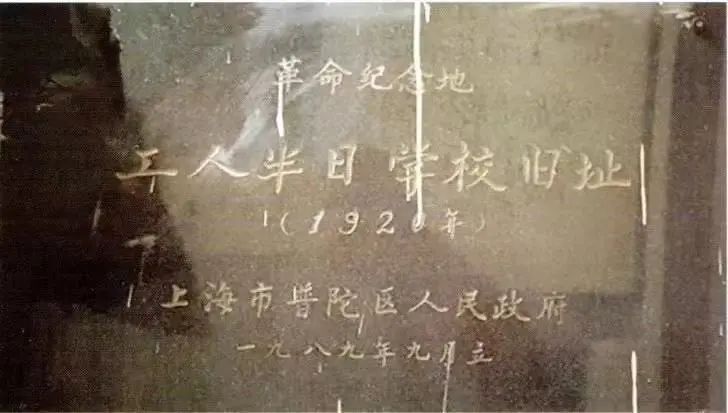 革命纪念地
工人半日学校旧址
(1920年)
上海市普陀区人民政府
一九八九年九月立